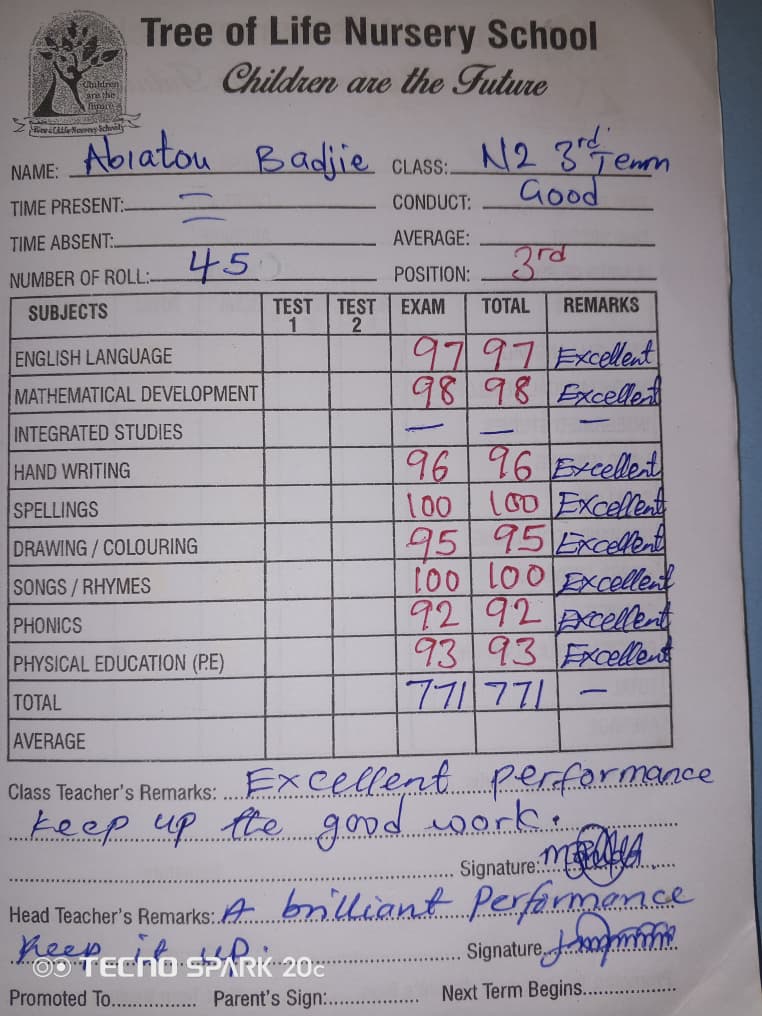 Tree of Life Nursery School
Children are the Future
Children
are the
future
Tree of Life Nursery School
NAME: Abiatou Badjie CLASS: N2 3rd Term
TIME PRESENT: = CONDUCT: Good
TIME ABSENT: AVERAGE:
NUMBER OF ROLL: 45 POSITION: 3rd
SUBJECTS TEST 1 TEST 2 EXAM TOTAL REMARKS
ENGLISH LANGUAGE 97 97 Excellent
MATHEMATICAL DEVELOPMENT 98 98 Excellent
INTEGRATED STUDIES — — —
HAND WRITING 96 96 Excellent
SPELLINGS 100 100 Excellent
DRAWING / COLOURING 95 95 Excellent
SONGS / RHYMES 100 100 Excellent
PHONICS 92 92 Excellent
PHYSICAL EDUCATION (P.E) 93 93 Excellent
TOTAL 771 771 —
AVERAGE
Class Teacher's Remarks: Excellent performance
keep up the good work.
Signature:
Head Teacher's Remarks: A brilliant Performance
Keep it up. Signature
TECNO SPARK 20c
Promoted To............... Parent's Sign:................ Next Term Begins.................